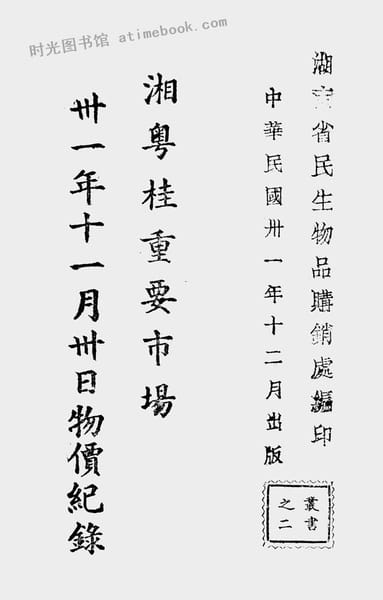 时光图书馆 atimebook.com
湖南省民生物品購銷處編印
中華民國卅一年十二月出版
叢書
之二
湘粵桂重要市場
卅一年十一月卅日物價紀錄